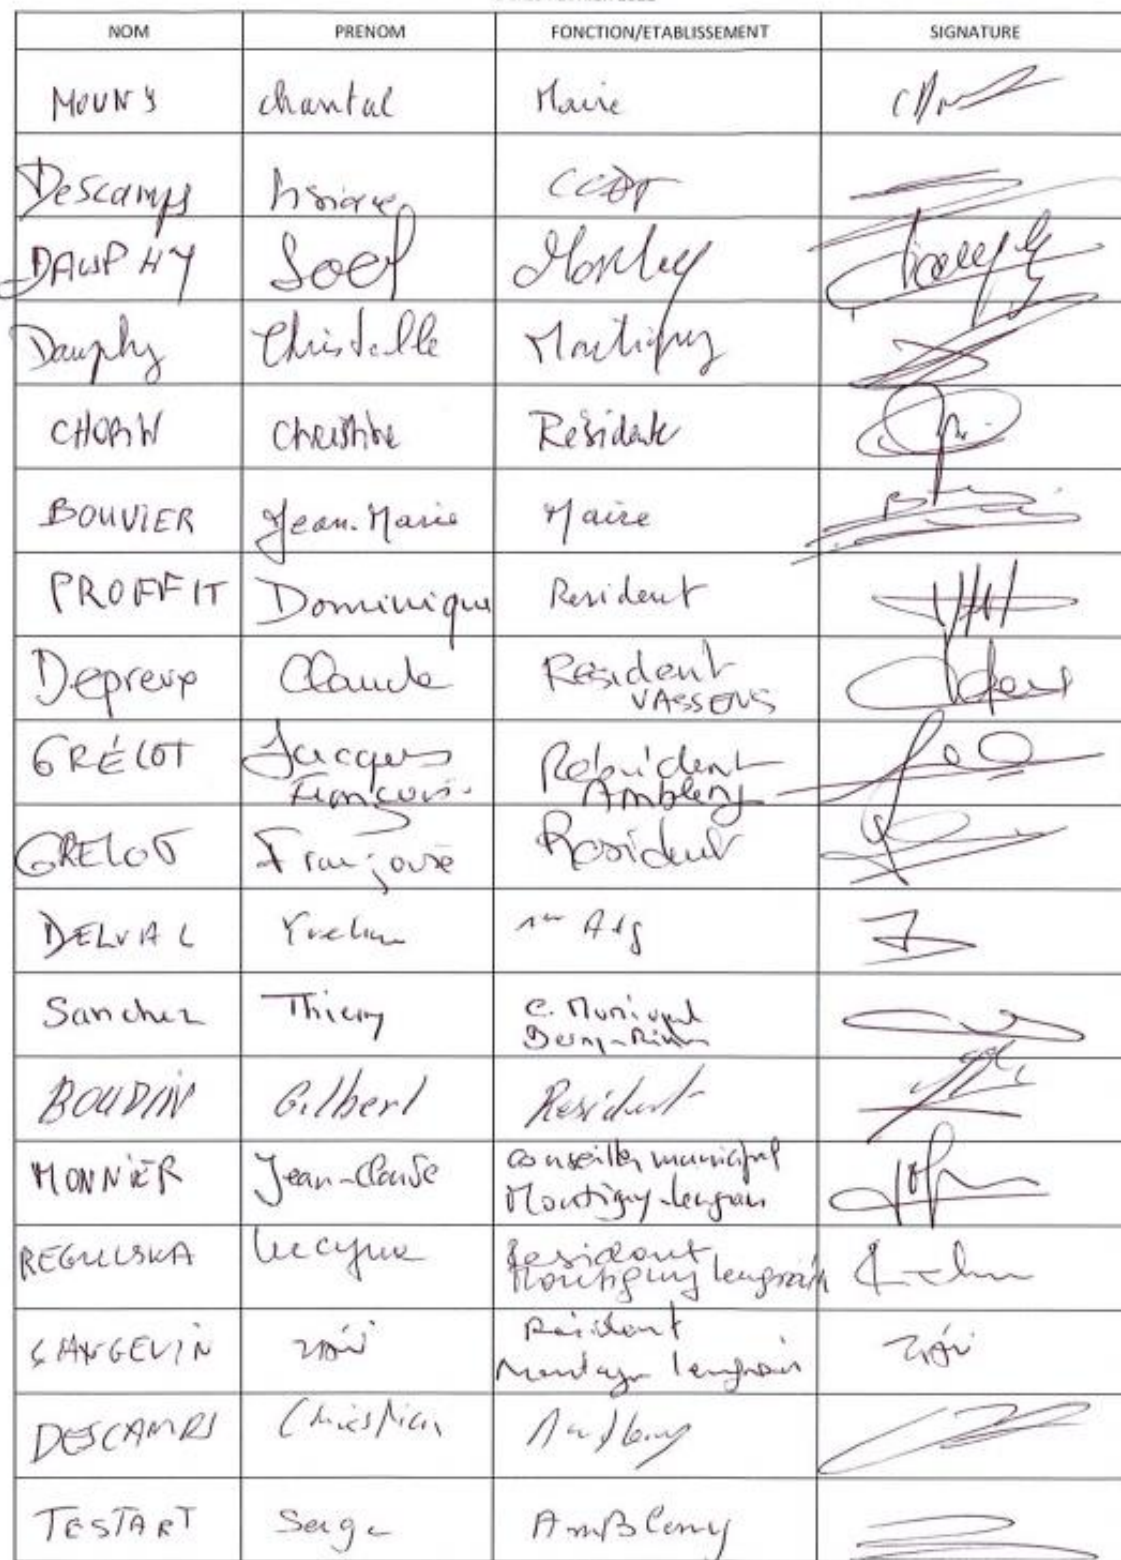 NOM PRENOM FONCTION/ETABLISSEMENT SIGNATURE
MOUNY Chantal Maire
Descamps CCDT
DAUPHY Joel
Dauphy Christelle Montigny
CHOPIN Christine Résidente
BOUVIER Jean-Marie Maire
PROFFIT Dominique Resident
Depreux Claude Résident
VASSENS
GRÉLOT Jacques Résident
François Ambleny
GRELOT Françoise Resident
DELVAL Yveline 1er Adj
Sanchez Thierry C. Municipal
BOUDIN Gilbert Resident
MONNIER Jean-Claude conseiller municipal
Montigny-lengrain
REGULSKA Lucyna Resident
Montigny lengrain
LANGEVIN Résident
Montigny lengrain
DESCAMPS Christian Ambleny
TESTART Serge AmBleny